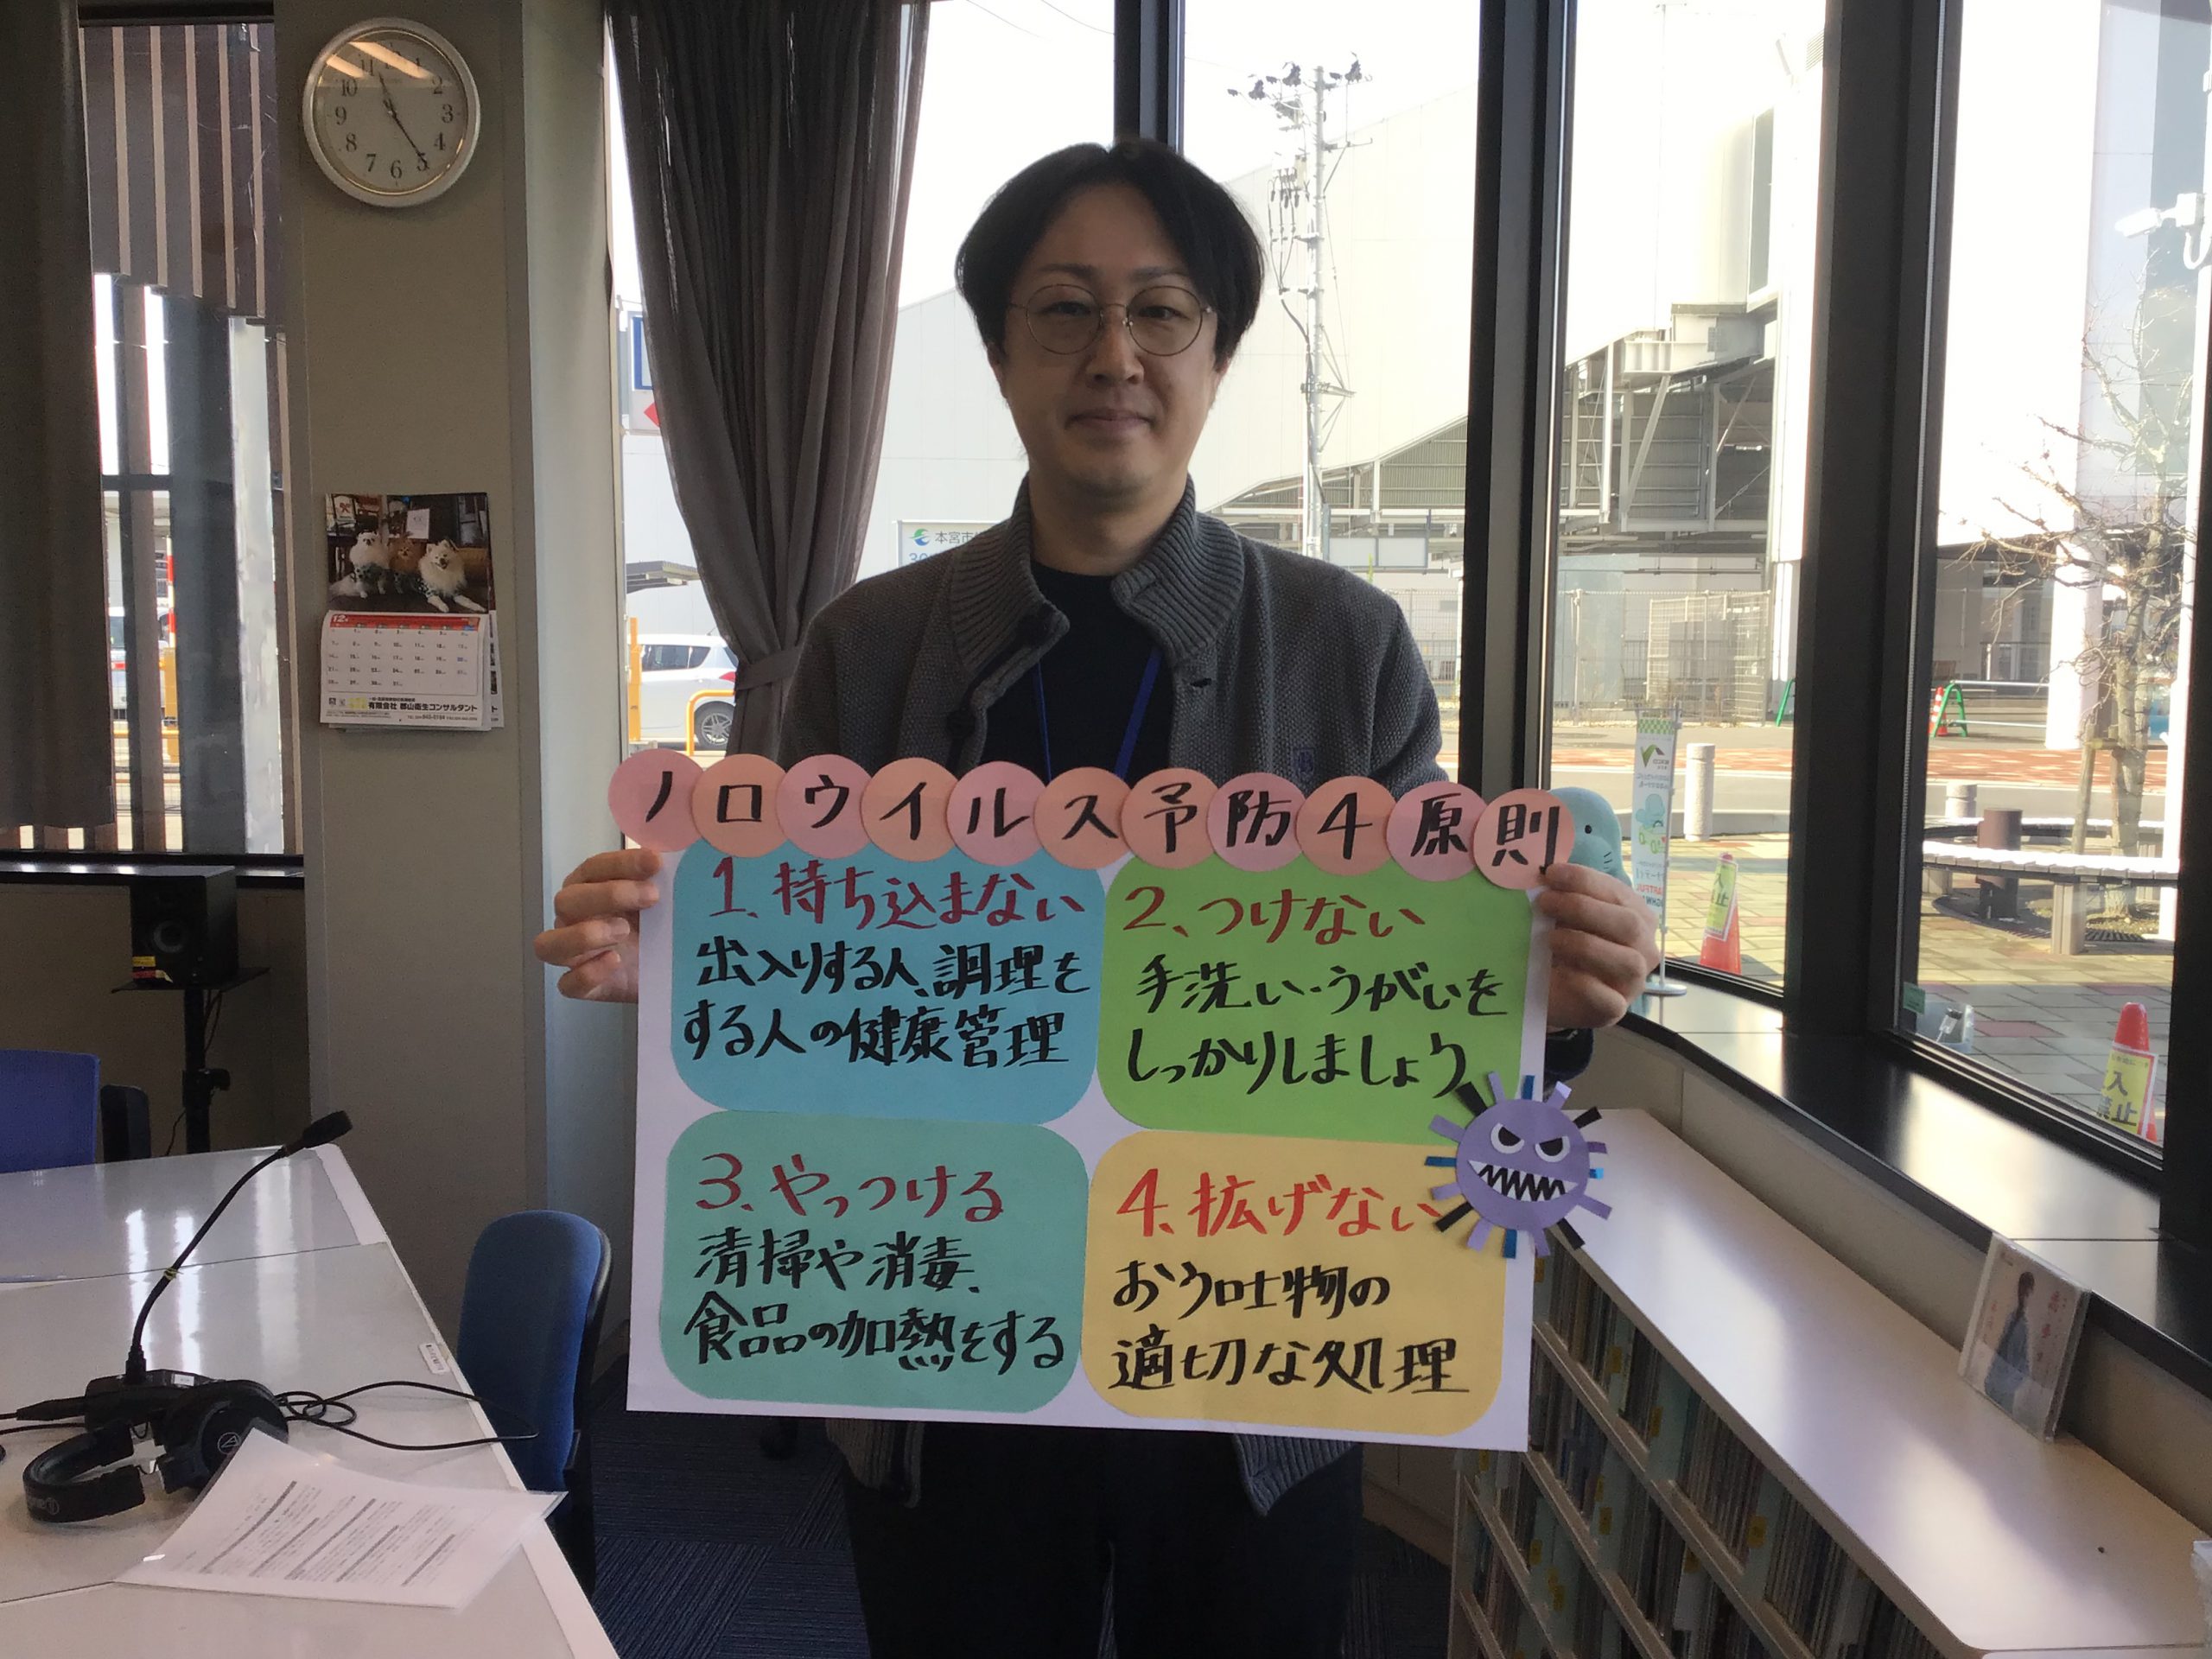 ノロウイルス予防4原則
1、持ち込まない
出入りする人、調理を
する人の健康管理
2、つけない
手洗い・うがいを
しっかりしましょう
3、やっつける
清掃や消毒、
食品の加熱をする
4、拡げない
おう吐物の
適切な処理
本宮市
12
有限会社 郡山衛生コンサルタント
11 1
10 2
9 3
8 4
7 6 5
入
止